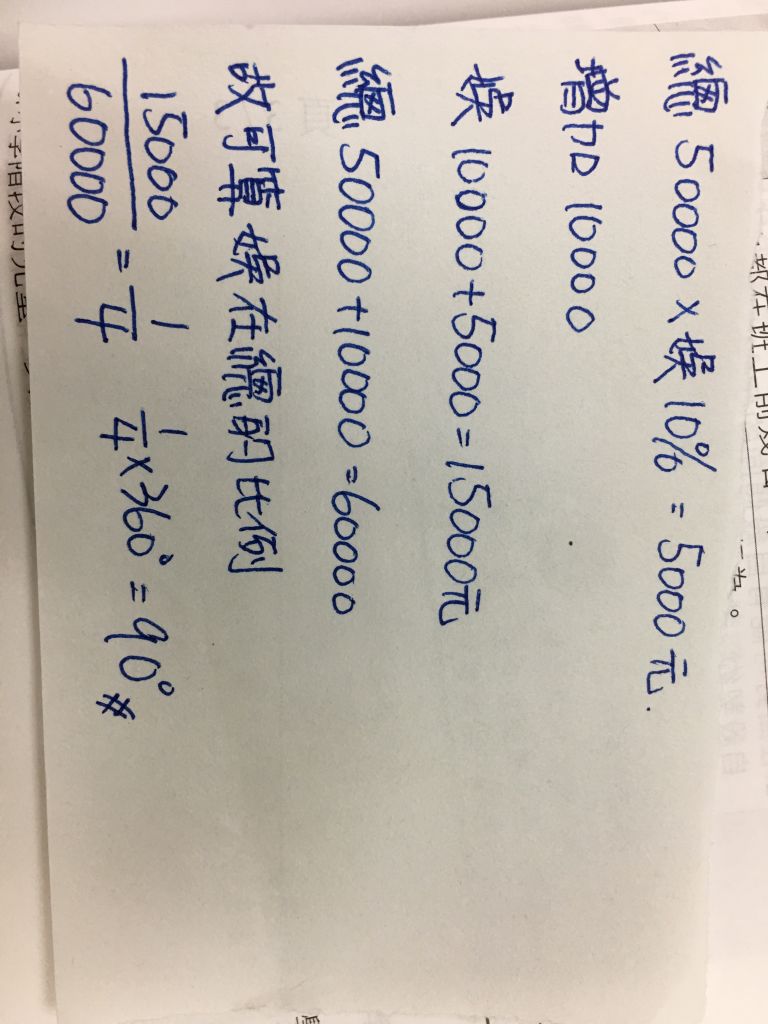 總 50000 × 娛 10% = 5000元.
增加 10000
娛 10000+5000=15000元
總 50000+10000=60000
故可算 娛在總的比例
15000/60000 = 1/4  1/4×360°=90°